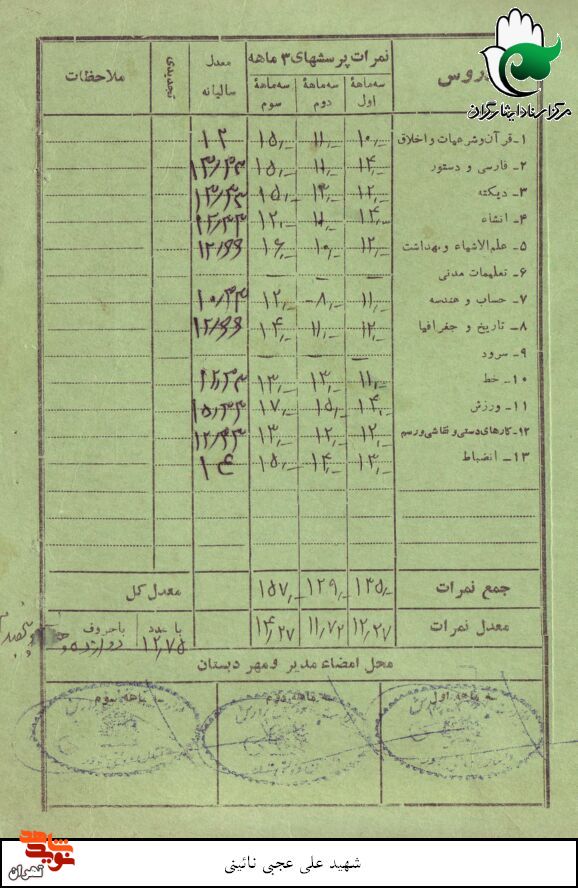 مرکز اسناد ایثارگران
دروس
نمرات پرسشهای ۳ ماهه
سه ماهۀ اول
سه ماهۀ دوم
سه ماهۀ سوم
معدل سالیانه
تجدیدی
ملاحظات
۱ـ قرآن و شرعیات و اخلاق ۱۰,ـ ۱۱,ـ ۱۵,ـ ۱۲
۲ـ فارسی و دستور ۱۴,ـ ۱۱,ـ ۱۵,ـ ۱۳/۳۳
۳ـ دیکته ۱۲,ـ ۱۳,ـ ۱۵,ـ ۱۳/۳۳
۴ـ انشاء ۱۴,ـ ۱۱,ـ ۱۲,ـ ۱۲/۳۳
۵ـ علم‌الاشیاء و بهداشت ۱۲,ـ ۱۰,ـ ۱۶,ـ ۱۲/۶۶
۶ـ تعلیمات مدنی ـ ـ ـ
۷ـ حساب و هندسه ۱۱,ـ ۸,ـ ۱۲,ـ ۱۰/۳۳
۸ـ تاریخ و جغرافیا ۱۲,ـ ۱۱,ـ ۱۴,ـ ۱۲/۶۶
۹ـ سرود ـ ـ ـ
۱۰ـ خط ۱۱,ـ ۱۳,ـ ۱۳,ـ ۱۲/۳۳
۱۱ـ ورزش ۱۴,ـ ۱۵,ـ ۱۷,ـ ۱۵/۳۳
۱۲ـ کارهای دستی و نقاشی و رسم ۱۲,ـ ۱۲,ـ ۱۳,ـ ۱۲/۳۳
۱۳ـ انضباط ۱۳,ـ ۱۴,ـ ۱۵,ـ ۱۴
جمع نمرات ۱۳۵,ـ ۱۲۹,ـ ۱۵۷,ـ معدل کل
معدل نمرات ۱۲,۲۷ ۱۱,۷۲ ۱۴,۲۷ با عدد ۱۲,۷۵ با حروف دوازده و
محل امضاء مدیر و مهر دبستان
سه ماهه اول
سه ماهه دوم
سه ماهه سوم
شهید علی عجبی نائینی
نوید شاهد
تهران